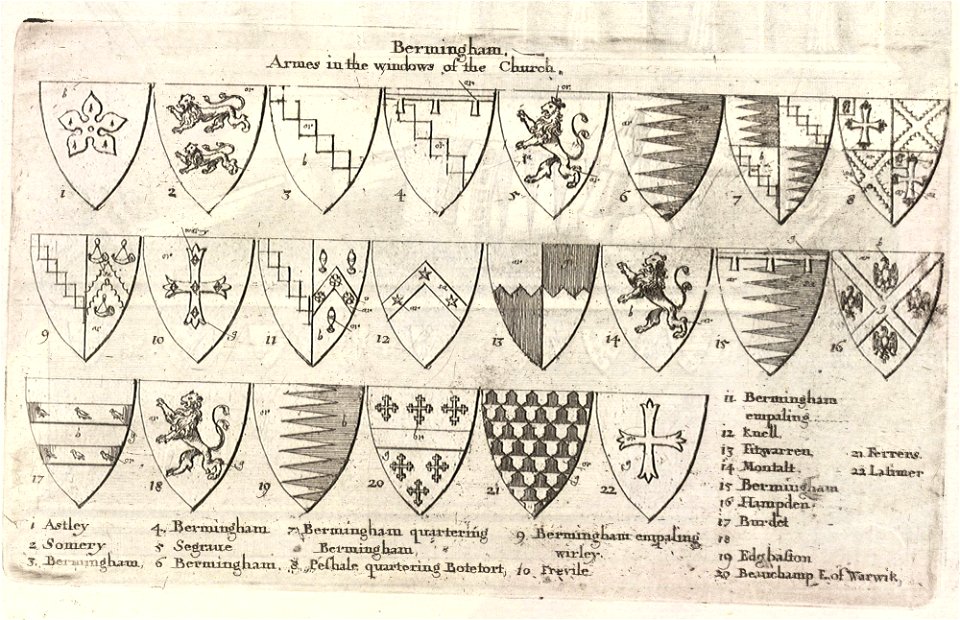 Bermingham.
Armes in the windows of the Church.
1
2
3
4
5
6
7
8
9
10
11
12
13
14
15
16
17
18
19
20
21
22
1 Astley
2 Somery
3. Bermingham,
4. Bermingham
5 Segraue
6 Bermingham.
7 Bermingham quartering
Bermingham,
8 Peshale quartering Botetort,
9 Bermingham empaling
wirley.
10 Frevile
11 Bermingham
empaling
12 Knell.
13 Fitzwarren,
14 Montalt.
15 Bermingham
16 Hampden
17 Burdet
18
19 Edgbaston
20 Beauchamp E. of Warwik,
21 Ferrers.
22 Latimer